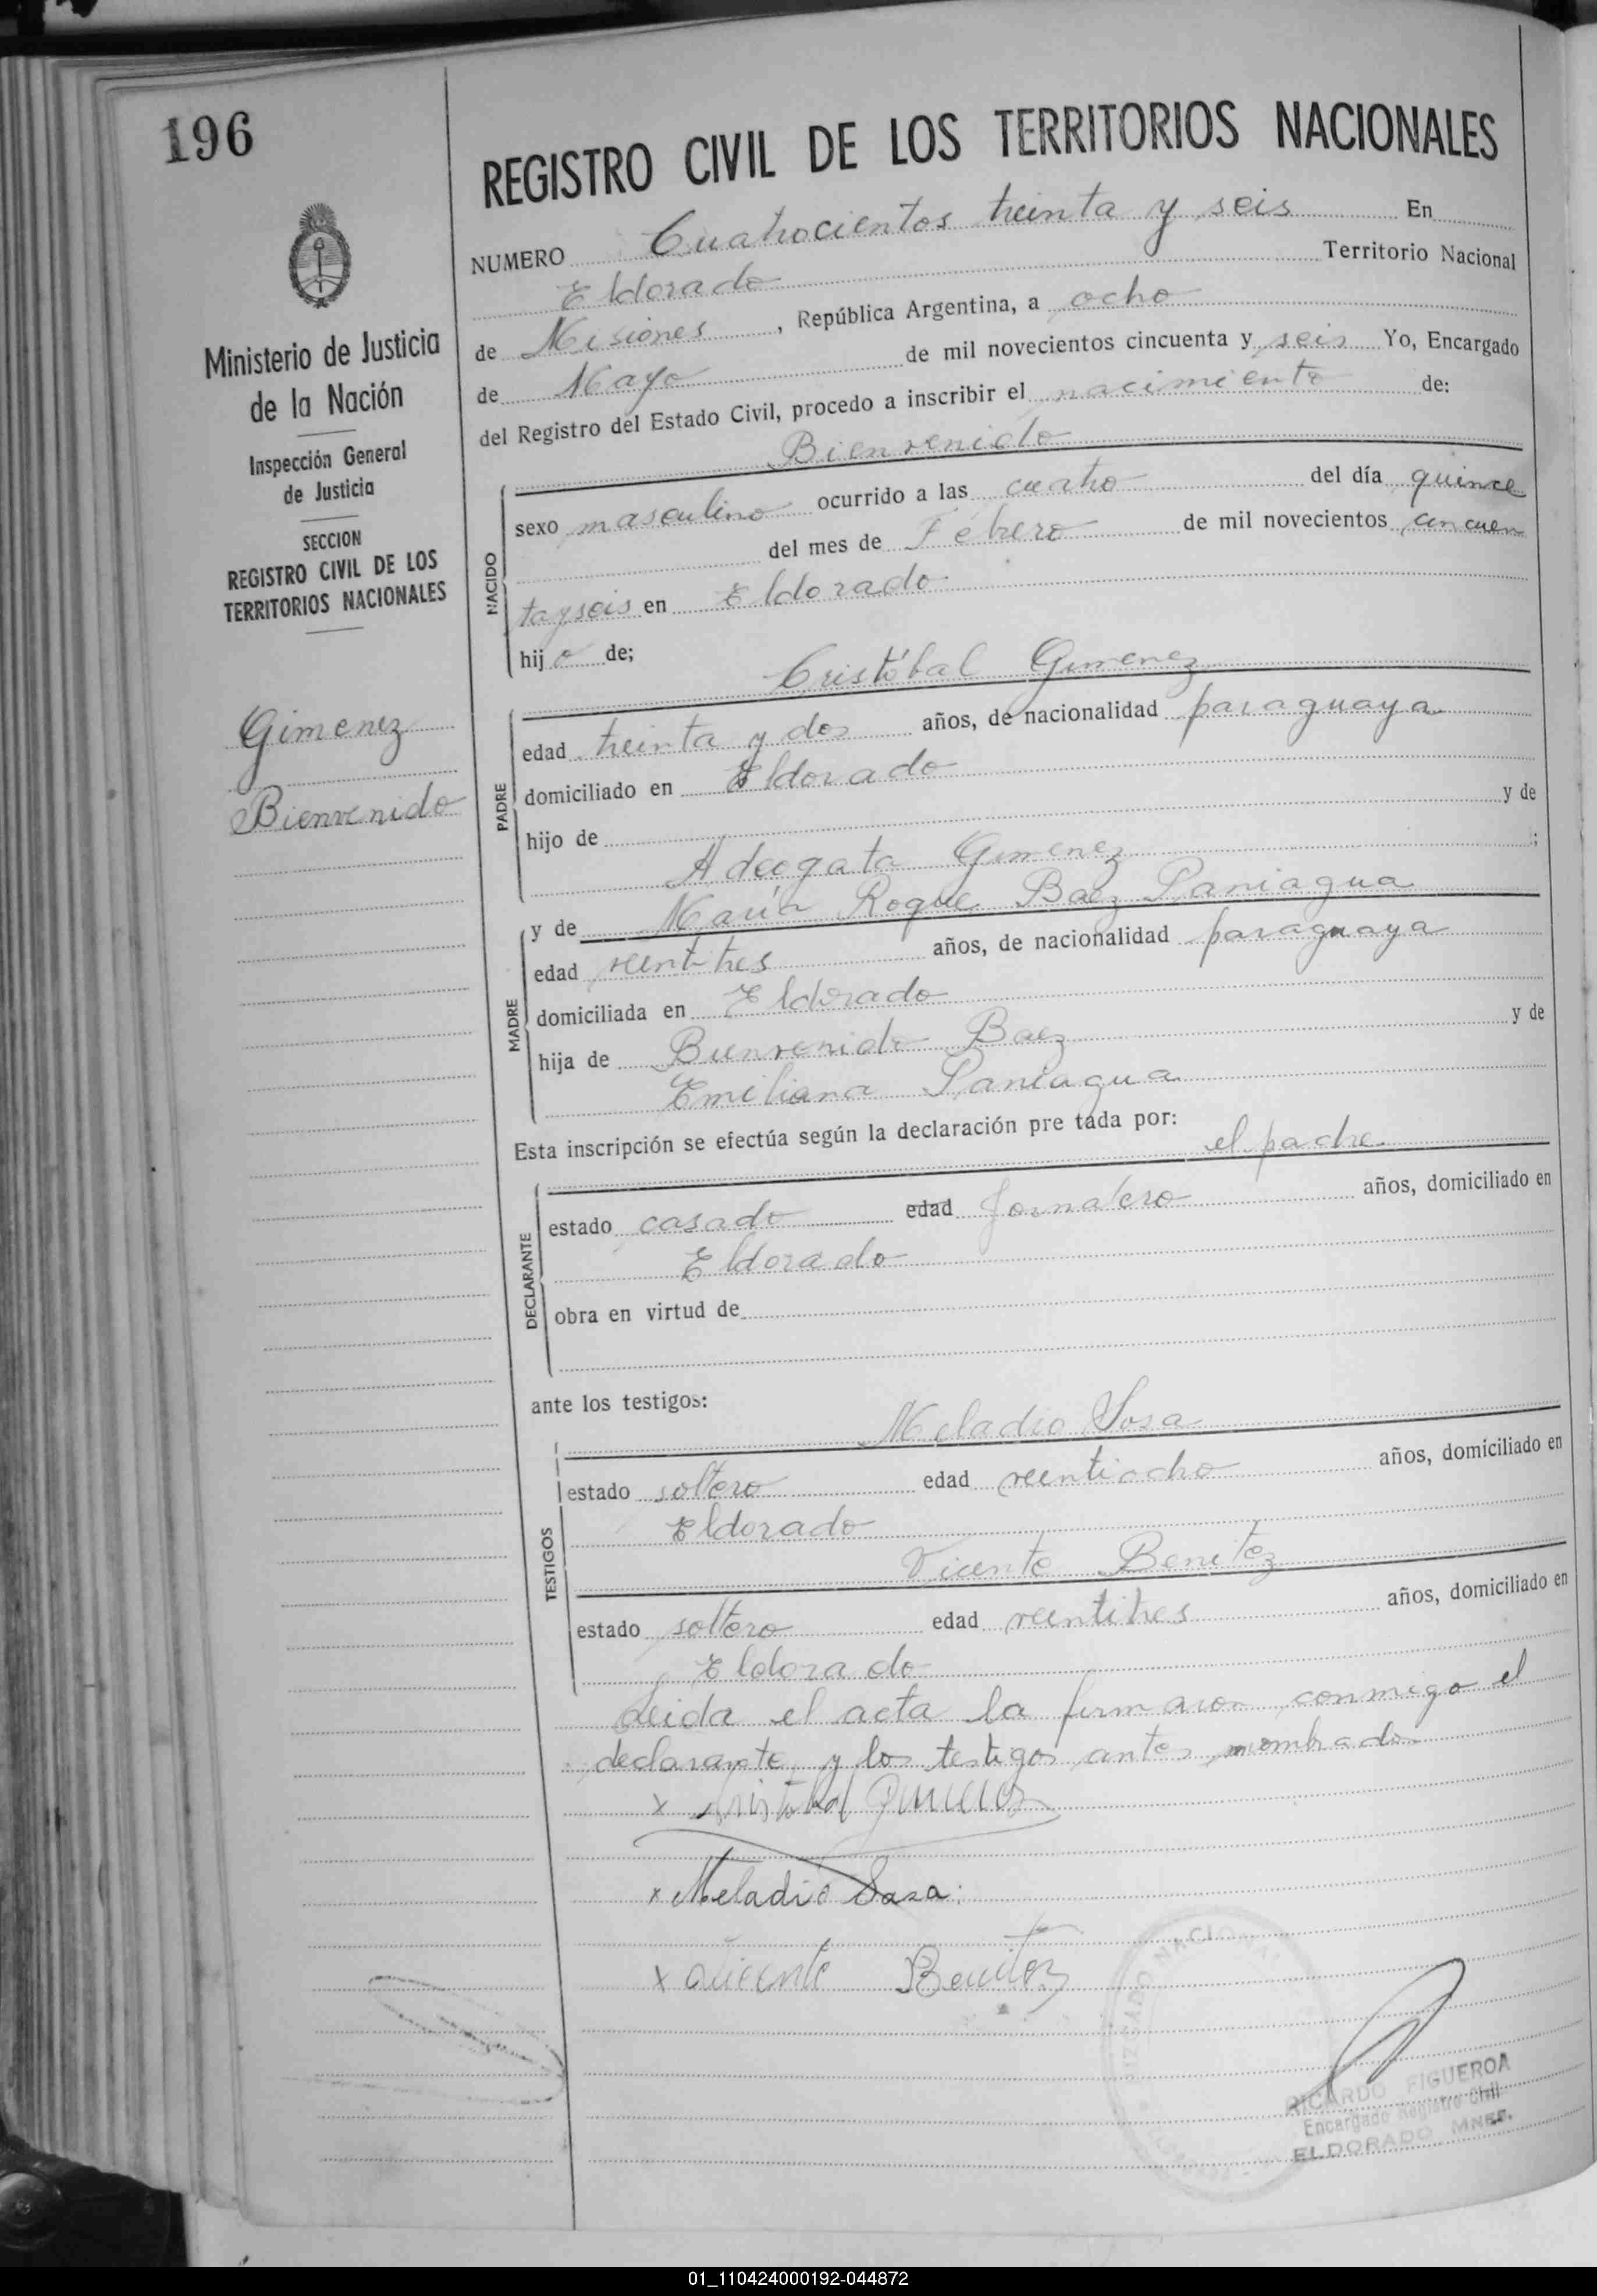 196
REGISTRO CIVIL DE LOS TERRITORIOS NACIONALES
NUMERO Cuatrocientos treinta y seis En
Eldorado Territorio Nacional
de Misiones, República Argentina, a ocho
de Mayo de mil novecientos cincuenta y seis Yo, Encargado
del Registro del Estado Civil, procedo a inscribir el nacimiento de:
Bienvenido
NACIDO
sexo masculino ocurrido a las cuatro del día quince
del mes de Febrero de mil novecientos cincuen
tayseis en Eldorado
hijo de;
Cristóbal Gimenez
PADRE
edad treinta y dos años, de nacionalidad paraguaya
domiciliado en Eldorado
hijo de y de
Adeogata Gimenez ;
MADRE
y de María Roque Baez Paniagua
edad veintitres años, de nacionalidad paraguaya
domiciliada en Eldorado
hija de Bienvenido Baez y de
Emiliana Paniagua
Esta inscripción se efectúa según la declaración pre tada por:
el padre
DECLARANTE
estado casado edad Jornalero años, domiciliado en
Eldorado
obra en virtud de
ante los testigos:
Meladio Sosa
TESTIGOS
estado soltero edad veintiocho años, domiciliado en
Eldorado
Vicente Benitez
estado soltero edad veintitres años, domiciliado en
Eldorado
Leida el acta la firmaron conmigo el
declarante y los testigos antes nombrados
x Cristobal Gimenez
x Meladio Sosa
x Vicente Benitez
NACIONAL
RICARDO FIGUEROA
Encargado Registro Civil
ELDORADO MNES.
Ministerio de Justicia
de la Nación
Inspección General
de Justicia
SECCION
REGISTRO CIVIL DE LOS
TERRITORIOS NACIONALES
Gimenez
Bienvenido
01_110424000192-044872